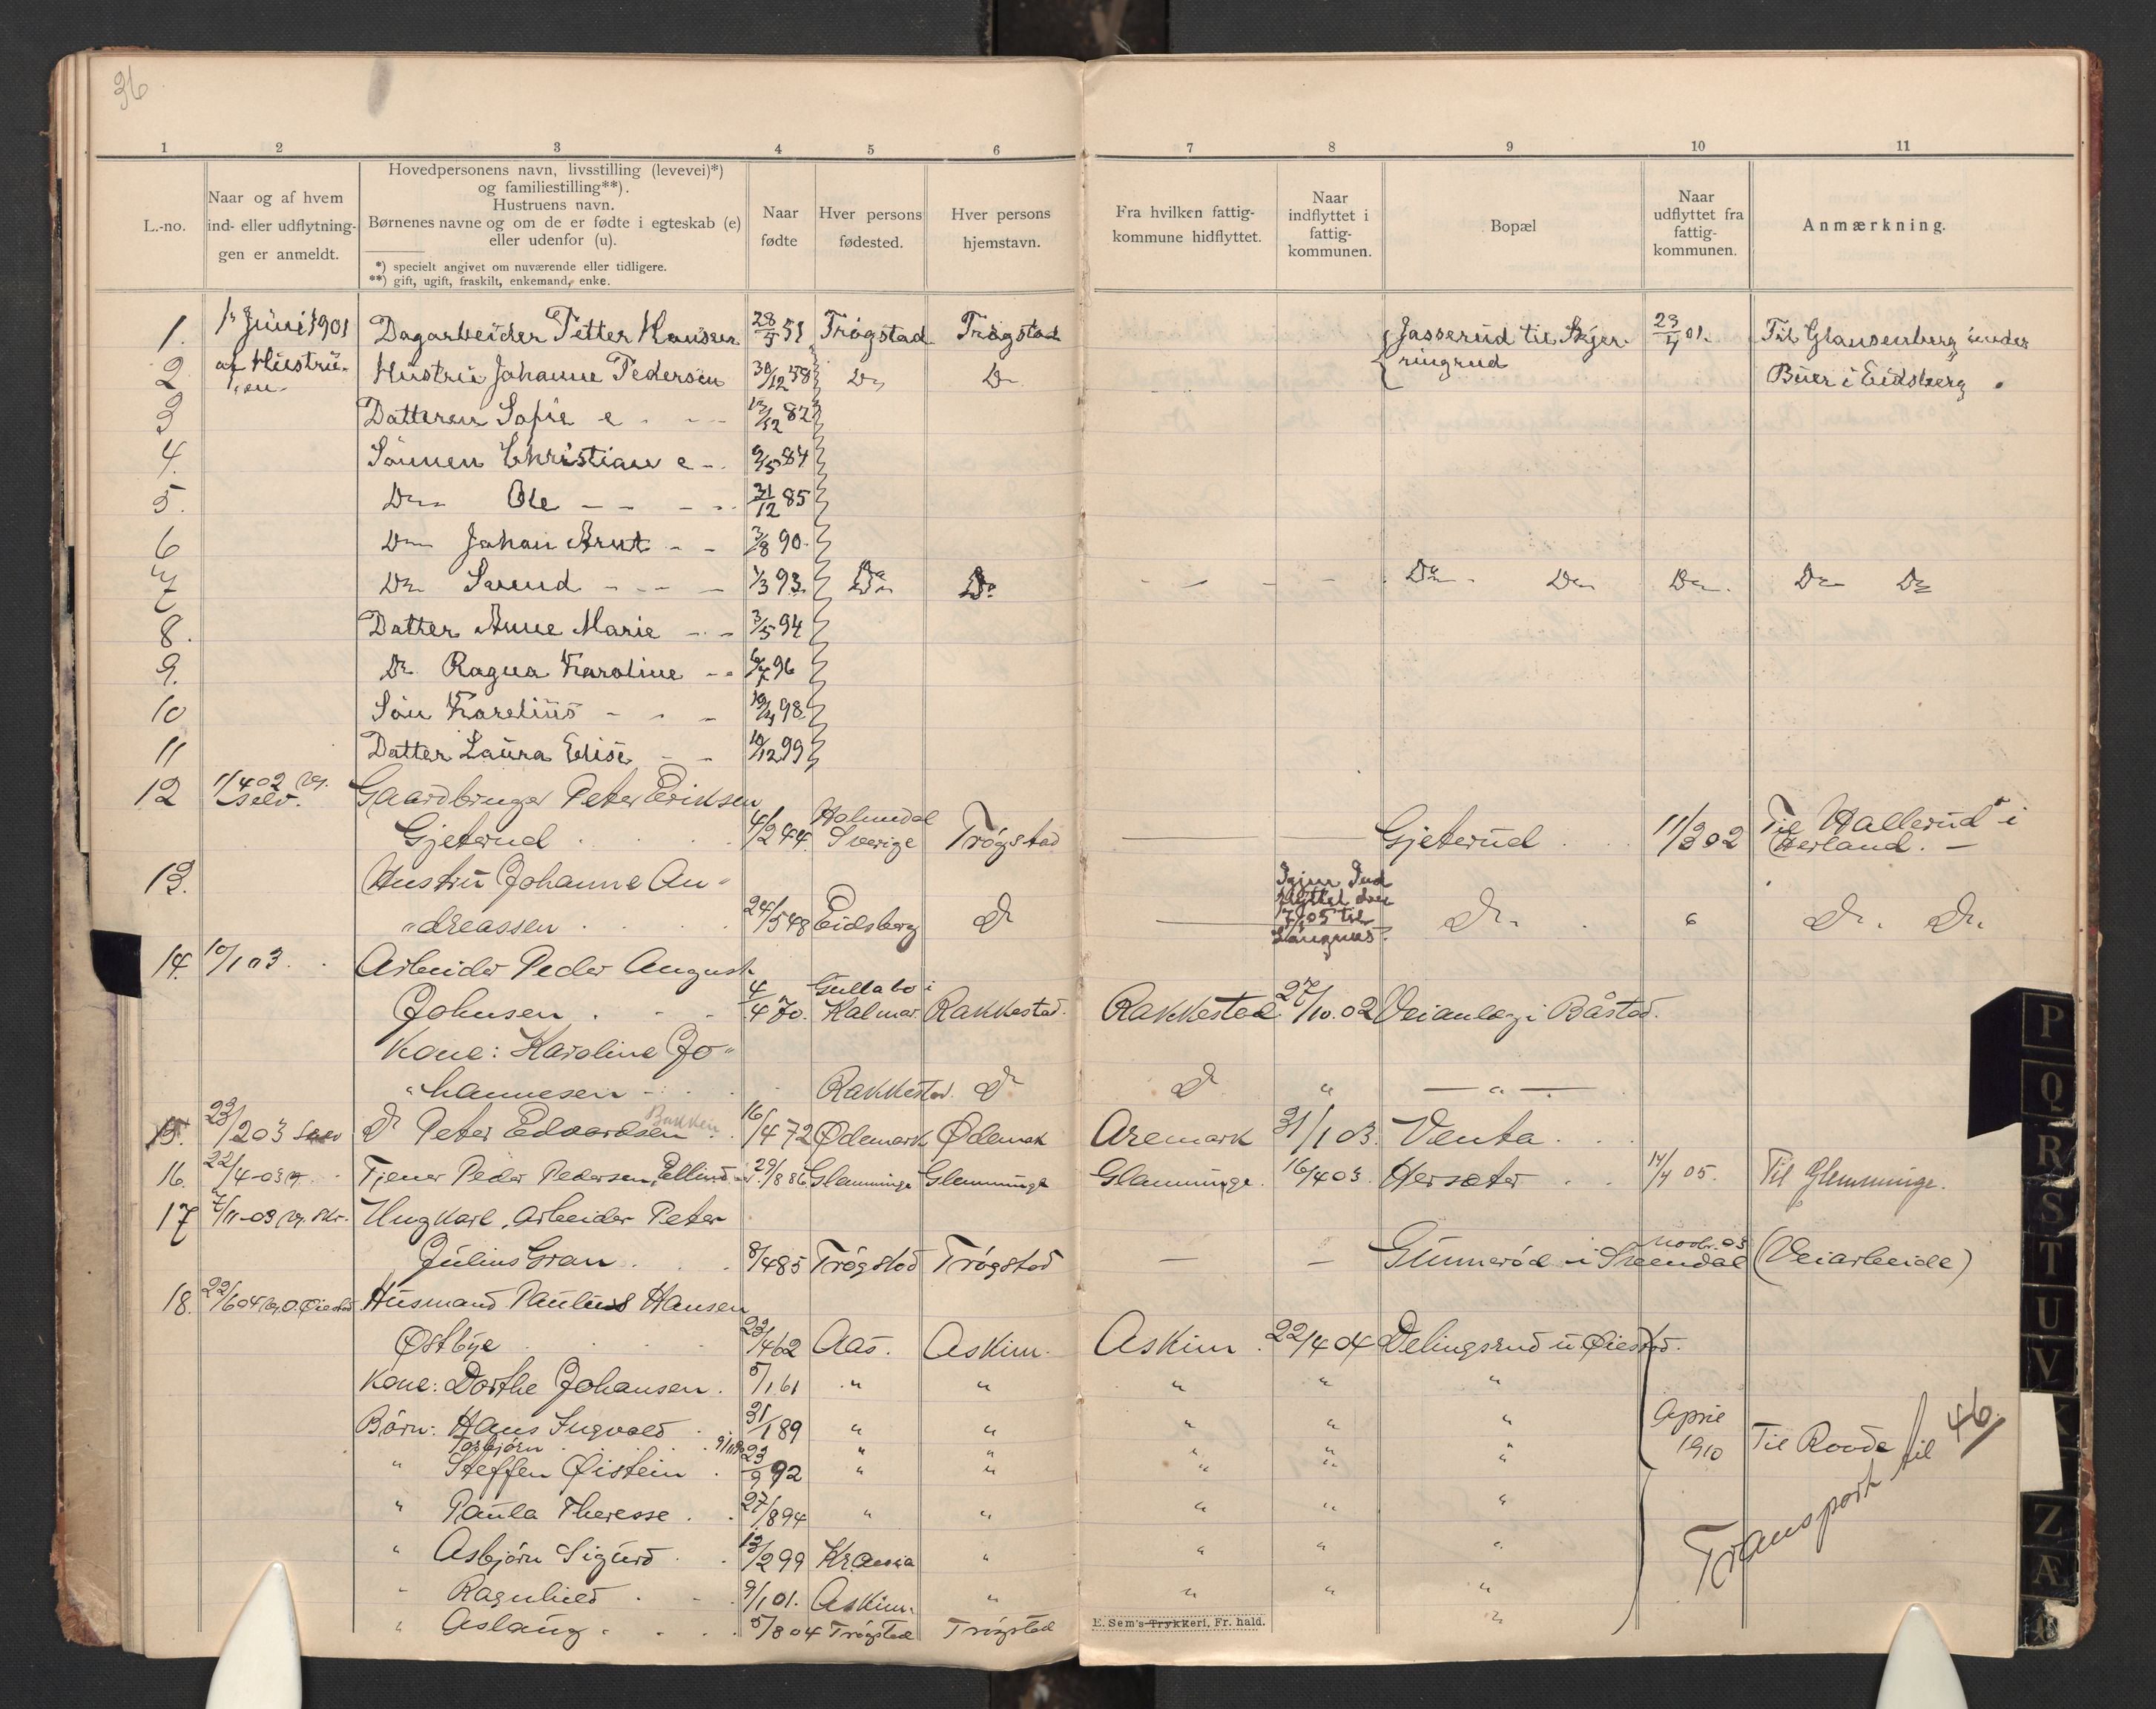 36
1 2 3 4 5 6 7 8 9 10 11
L.-no.
Naar og af hvem
ind- eller udflytnin-
gen er anmeldt.
Hovedpersonens navn, livsstilling (levevei)*)
og familiestilling**).
Hustruens navn.
Børnenes navne og om de er fødte i egteskab (e)
eller udenfor (u).
*) specielt angivet om nuværende eller tidligere.
**) gift, ugift, fraskilt, enkemand, enke.
Naar
fødte
Hver persons
fødested.
Hver persons
hjemstavn.
Fra hvilken fattig-
kommune hidflyttet.
Naar
indflyttet i
fattig-
kommunen.
Bopæl
Naar
udflyttet fra
fattig-
kommunen.
Anmærkning.
1. Juni 1901 Dagarbeider Petter Hansen 28/5 51 Trøgstad Trøgstad Jasserud til Skjer- 23/4 01. Til Glansenberg under
2 af Hustru- Hustru Johanne Pedersen 30/12 58 Do Do ringrud Buer i Eidsberg.
en.
3 Datteren Sofie e 12/12 82
4. Sønnen Christian e 9/5 84
5. Do Ole 31/12 85
6 Do Johan Arnt 3/8 90
7 Do Svend 1/3 93 Do Do Do Do Do Do Do
8. Datter Anne Marie 3/5 94
9. Do Ragna Karoline 6/7 96
10 Søn Karelius 98
11 Datter Laura Elise 10/12 99
12 1/4 02 vg. Gaardbruger Peter Eriksen
selv. Gjeterud 4/2 44. Holmedal
Sverige Trøgstad Gjeterud 11/3 02 Til Hallerud i
Herland.
13. Hustru Johanne An-
dreassen 24/5 48 Eidsberg Do Igjen Ind
flyttet den
7/ 05 til
Langnes. Do " Do. Do.
14. 10/1 03. Arbeider Peder August
Johnsen 4/4 70. Gullabo i
Kalmar. Rakkestad. Rakkestad. 27/10. 02 Veianlæg i Båstad.
Kone: Karoline Jo-
hannesen Rakkestad. Do Do " "
15. 23/2 03 Selv Do Peter Edvardsen Bakken 16/4 72 Ødemark Ødemark Aremark 31/1 03. Venta
16. 22/4-03 Tjener Peder Pedersen, Ellind 29/8 86 Glemminge Glemminge Glemminge. 16/4 03. Hersæter 14/4 05. Til Glemminge.
17 /11-03 vg. Skr. Ungkarl, Arbeider Peter
Julius Gran 8/4 85 Trøgstad Trøgstad Gunnerød i Skeendal Novbr. 03 (Veiarbeide)
18. 22/6 04 vg. O. Øiestad Husmand Paulus Hansen
Østbye 23/4 62 Aas. Askim. Askim. 22/4 04 Delingsrud u Øiestad.
Kone: Dorthe Johansen. 5/1 61 " " " " "
Børn: Hans Ingvald 31/1 89 " " " " " April
1910 Til Raade
Torbjørn 9/1 90 " " " " "
" Steffen Øistein 23/9 92 " " " "
" Paula Theresse 27/8 94 " " " " "
" Asbjørn Sigurd 13/2 99 Krania " " " "
" Ragnhild 9/1 01. Askim. " " " "
" Aslaug 5/8 04 Trøgstad Trøgstad "
Transport til 46.
E. Sem's Trykkeri, Fr. hald.
P
Q
R
S
T
U
V
Z
Æ